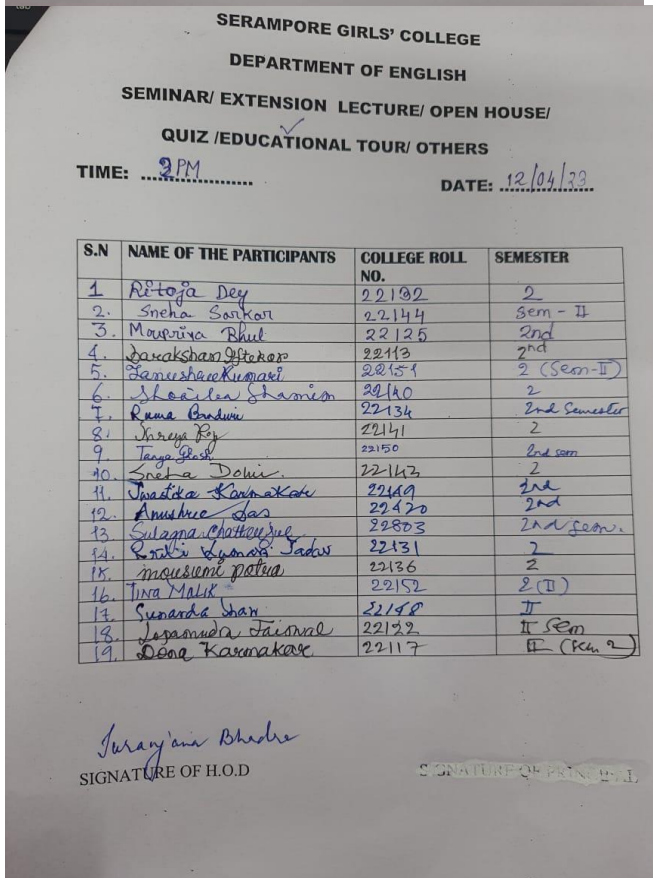 SERAMPORE GIRLS' COLLEGE
DEPARTMENT OF ENGLISH
SEMINAR/ EXTENSION LECTURE/ OPEN HOUSE/
QUIZ /EDUCATIONAL TOUR/ OTHERS
TIME: 2PM
DATE: 12/04/23
S.N NAME OF THE PARTICIPANTS COLLEGE ROLL NO. SEMESTER
1 Ritoja Dey 22132 2
2. Sneha Sarkar 22144 Sem - II
3. Moupriya Bhul 22125 2nd
4. Daraksham Iftekar 22113 2nd
5. Kumari 22151 2 (Sem-II)
6. Shamim 22140 2
7. Ruma 22134 2nd Semester
8. Shreya Roy 22141 2
9. Tanya Ghosh 22150 2nd sem
10. Sneha 22143 2
11. Swastika Karmakar 22149 2nd
12. Anushree Das 2nd
13. Sulagna Chatterjee 22803 2nd sem.
14. Kumari Jadav 22131 2
15. mousumi patra 22136 2
16. TINA MALIK 22152 2 (II)
17. Sunanda Shaw 22148 II
18. Lopamudra Jaiswal 22122 II Sem
19. Dona Karmakar 22117 II (Sem 2)
Suranjana Bhadra
SIGNATURE OF H.O.D
SIGNATURE OF PRINCIPAL